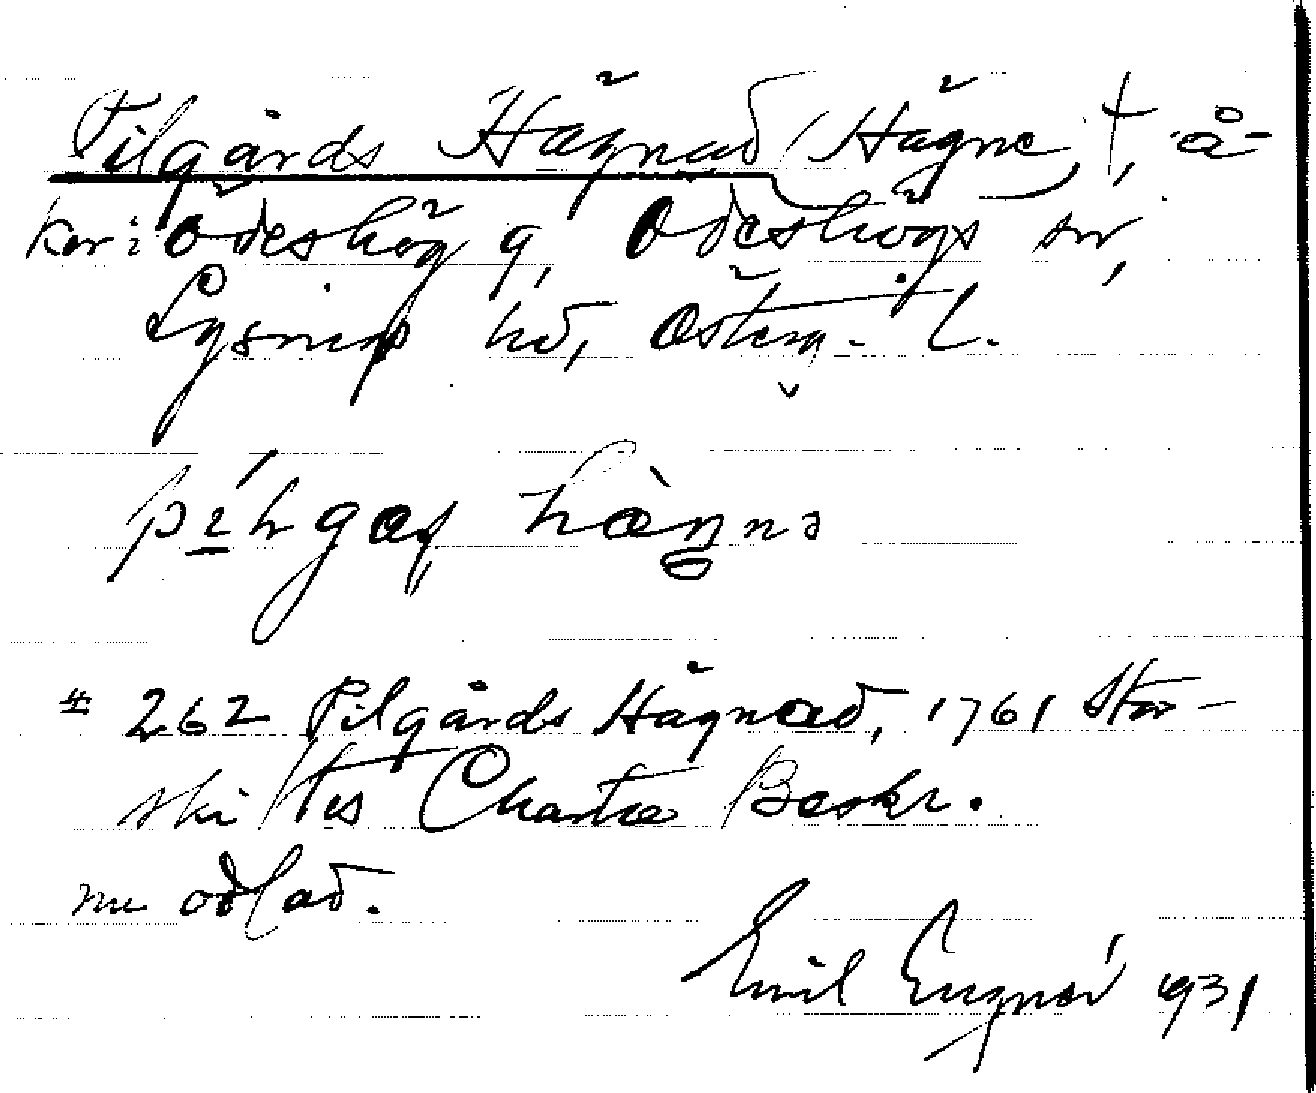 Pilgårds Hägnad (Hägne), †, å-
ker i Ödeshög g, Ödeshögs sn,
Lysings hd, Österg. l.
* 262 Pilgårds Hägnad, 1761 Stor-
skiftes Charta Beskr.
nu odlad.
Emil 1931